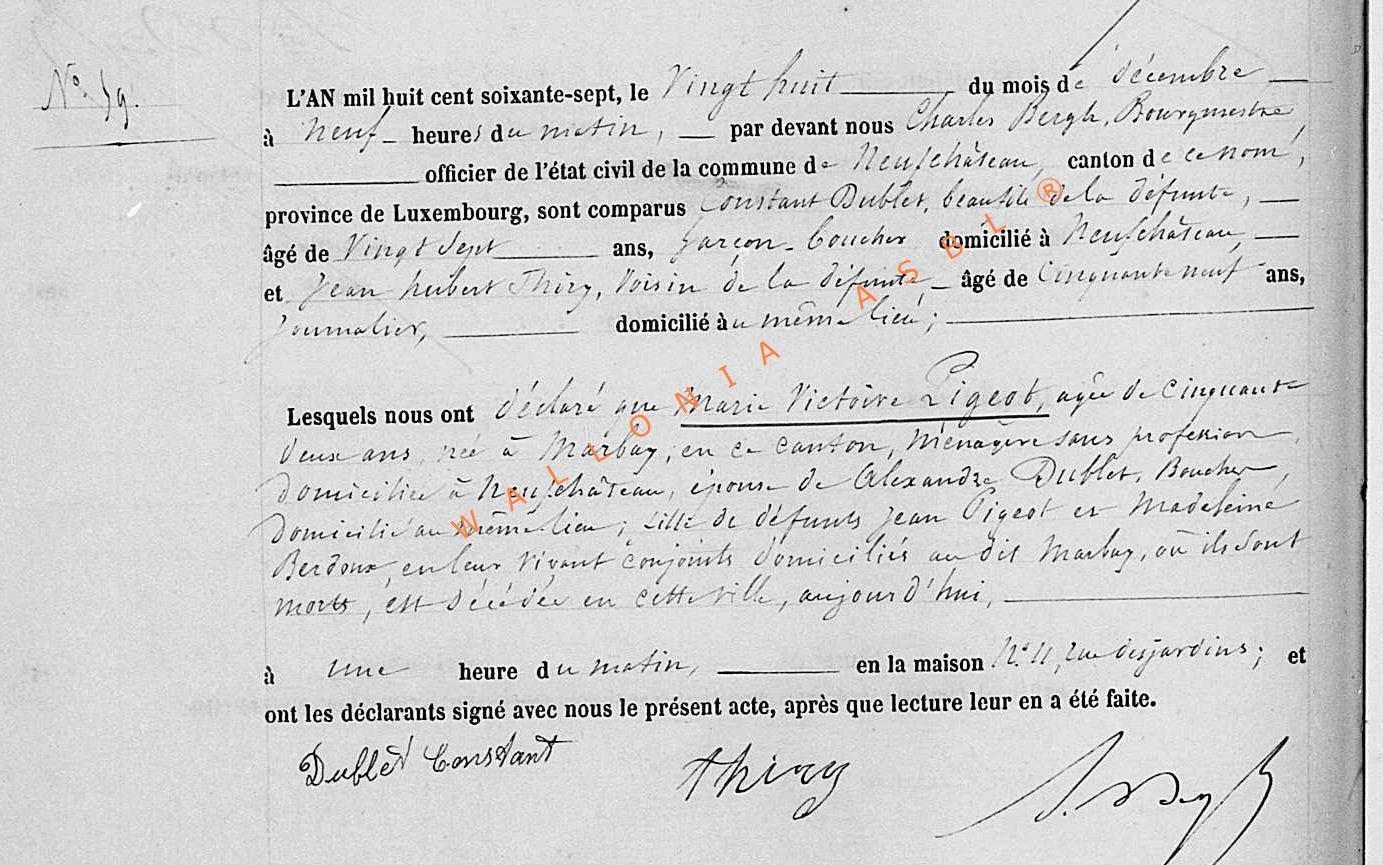 N° 59.
L'AN mil huit cent soixante-sept, le Vingt huit du mois de décembre
à neuf heures du matin, par devant nous Charles Bergh, Bourgmestre,
officier de l'état civil de la commune de Neufchâteau, canton de ce nom,
province de Luxembourg, sont comparus Constant Dublet, beaufils de la défunte,
âgé de Vingt Sept ans, garçon-boucher domicilié à Neufchâteau,
et Jean hubert Thiry, Voisin de la défunte, âgé de Cinquante neuf ans,
journalier, domicilié au même lieu;
Lesquels nous ont déclaré que Marie Victoire Pigeot, agée de cinquante
deux ans, née à Marbay, en ce canton, Ménagère sans profession
domiciliée à Neufchâteau, épouse de Alexandre Dublet, Boucher,
Domicilié au même lieu; fille de défunts Jean Pigeot et Madeleine
Berdoux, en leur vivant conjoints domiciliés au dit Marbay, où ils sont
morts, est décédée en cette ville, aujourd'hui,
à une heure du matin, en la maison N° 11, rue des jardins; et
ont les déclarants signé avec nous le présent acte, après que lecture leur en a été faite.
Dublet Constant Thiry
WALLONIA ASBL ®